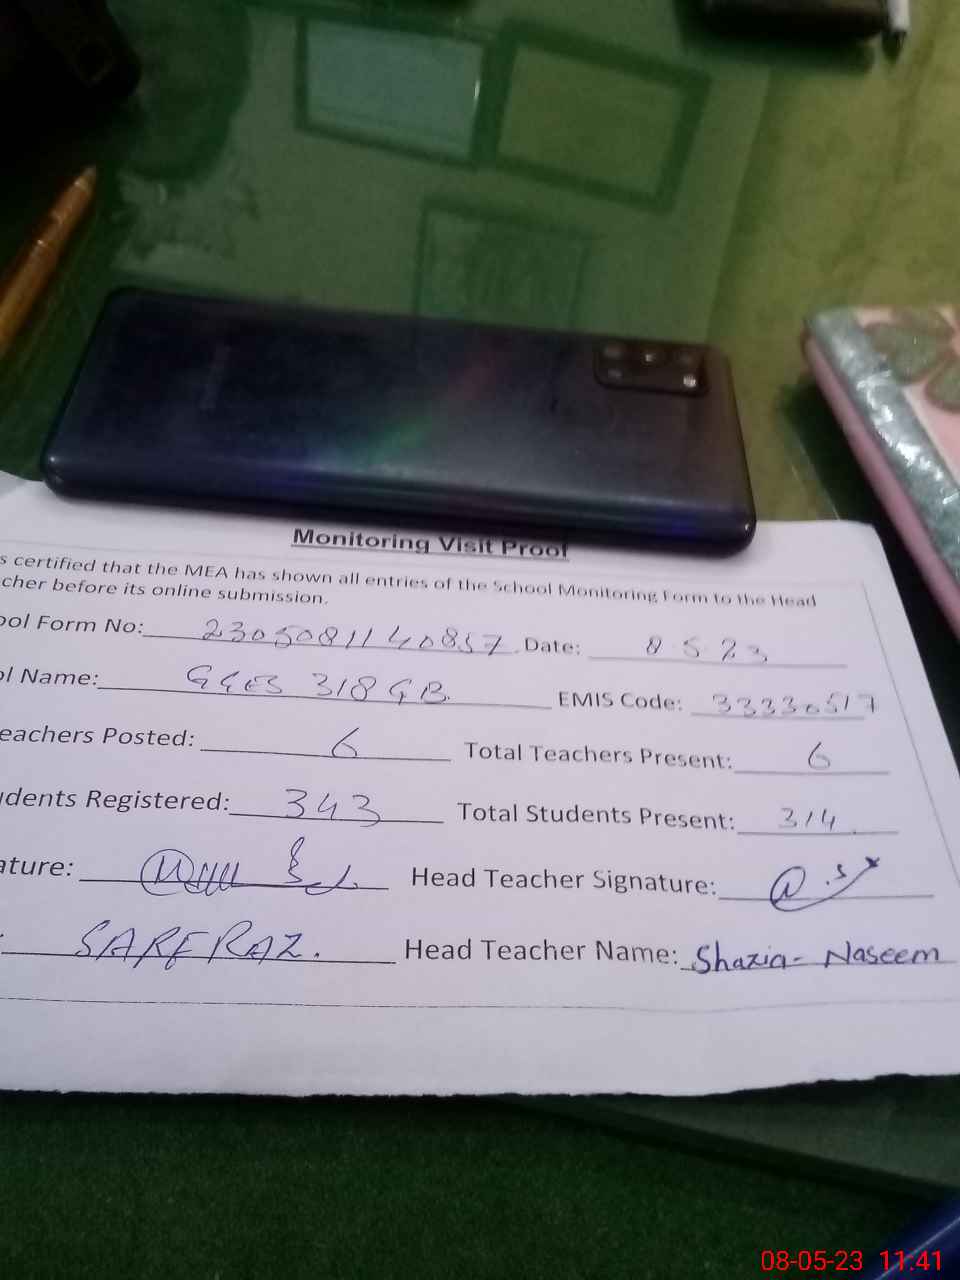 Monitoring Visit Proof
s certified that the MEA has shown all entries of the School Monitoring Form to the Head
cher before its online submission.
ool Form No: 2305081140857 Date: 8 5 23
ol Name: GGES 318 GB. EMIS Code: 33330517
eachers Posted: 6 Total Teachers Present: 6
dents Registered: 343 Total Students Present: 314
ature: Head Teacher Signature:
SARFRAZ. Head Teacher Name: Shazia- Naseem
08-05-23 11:41